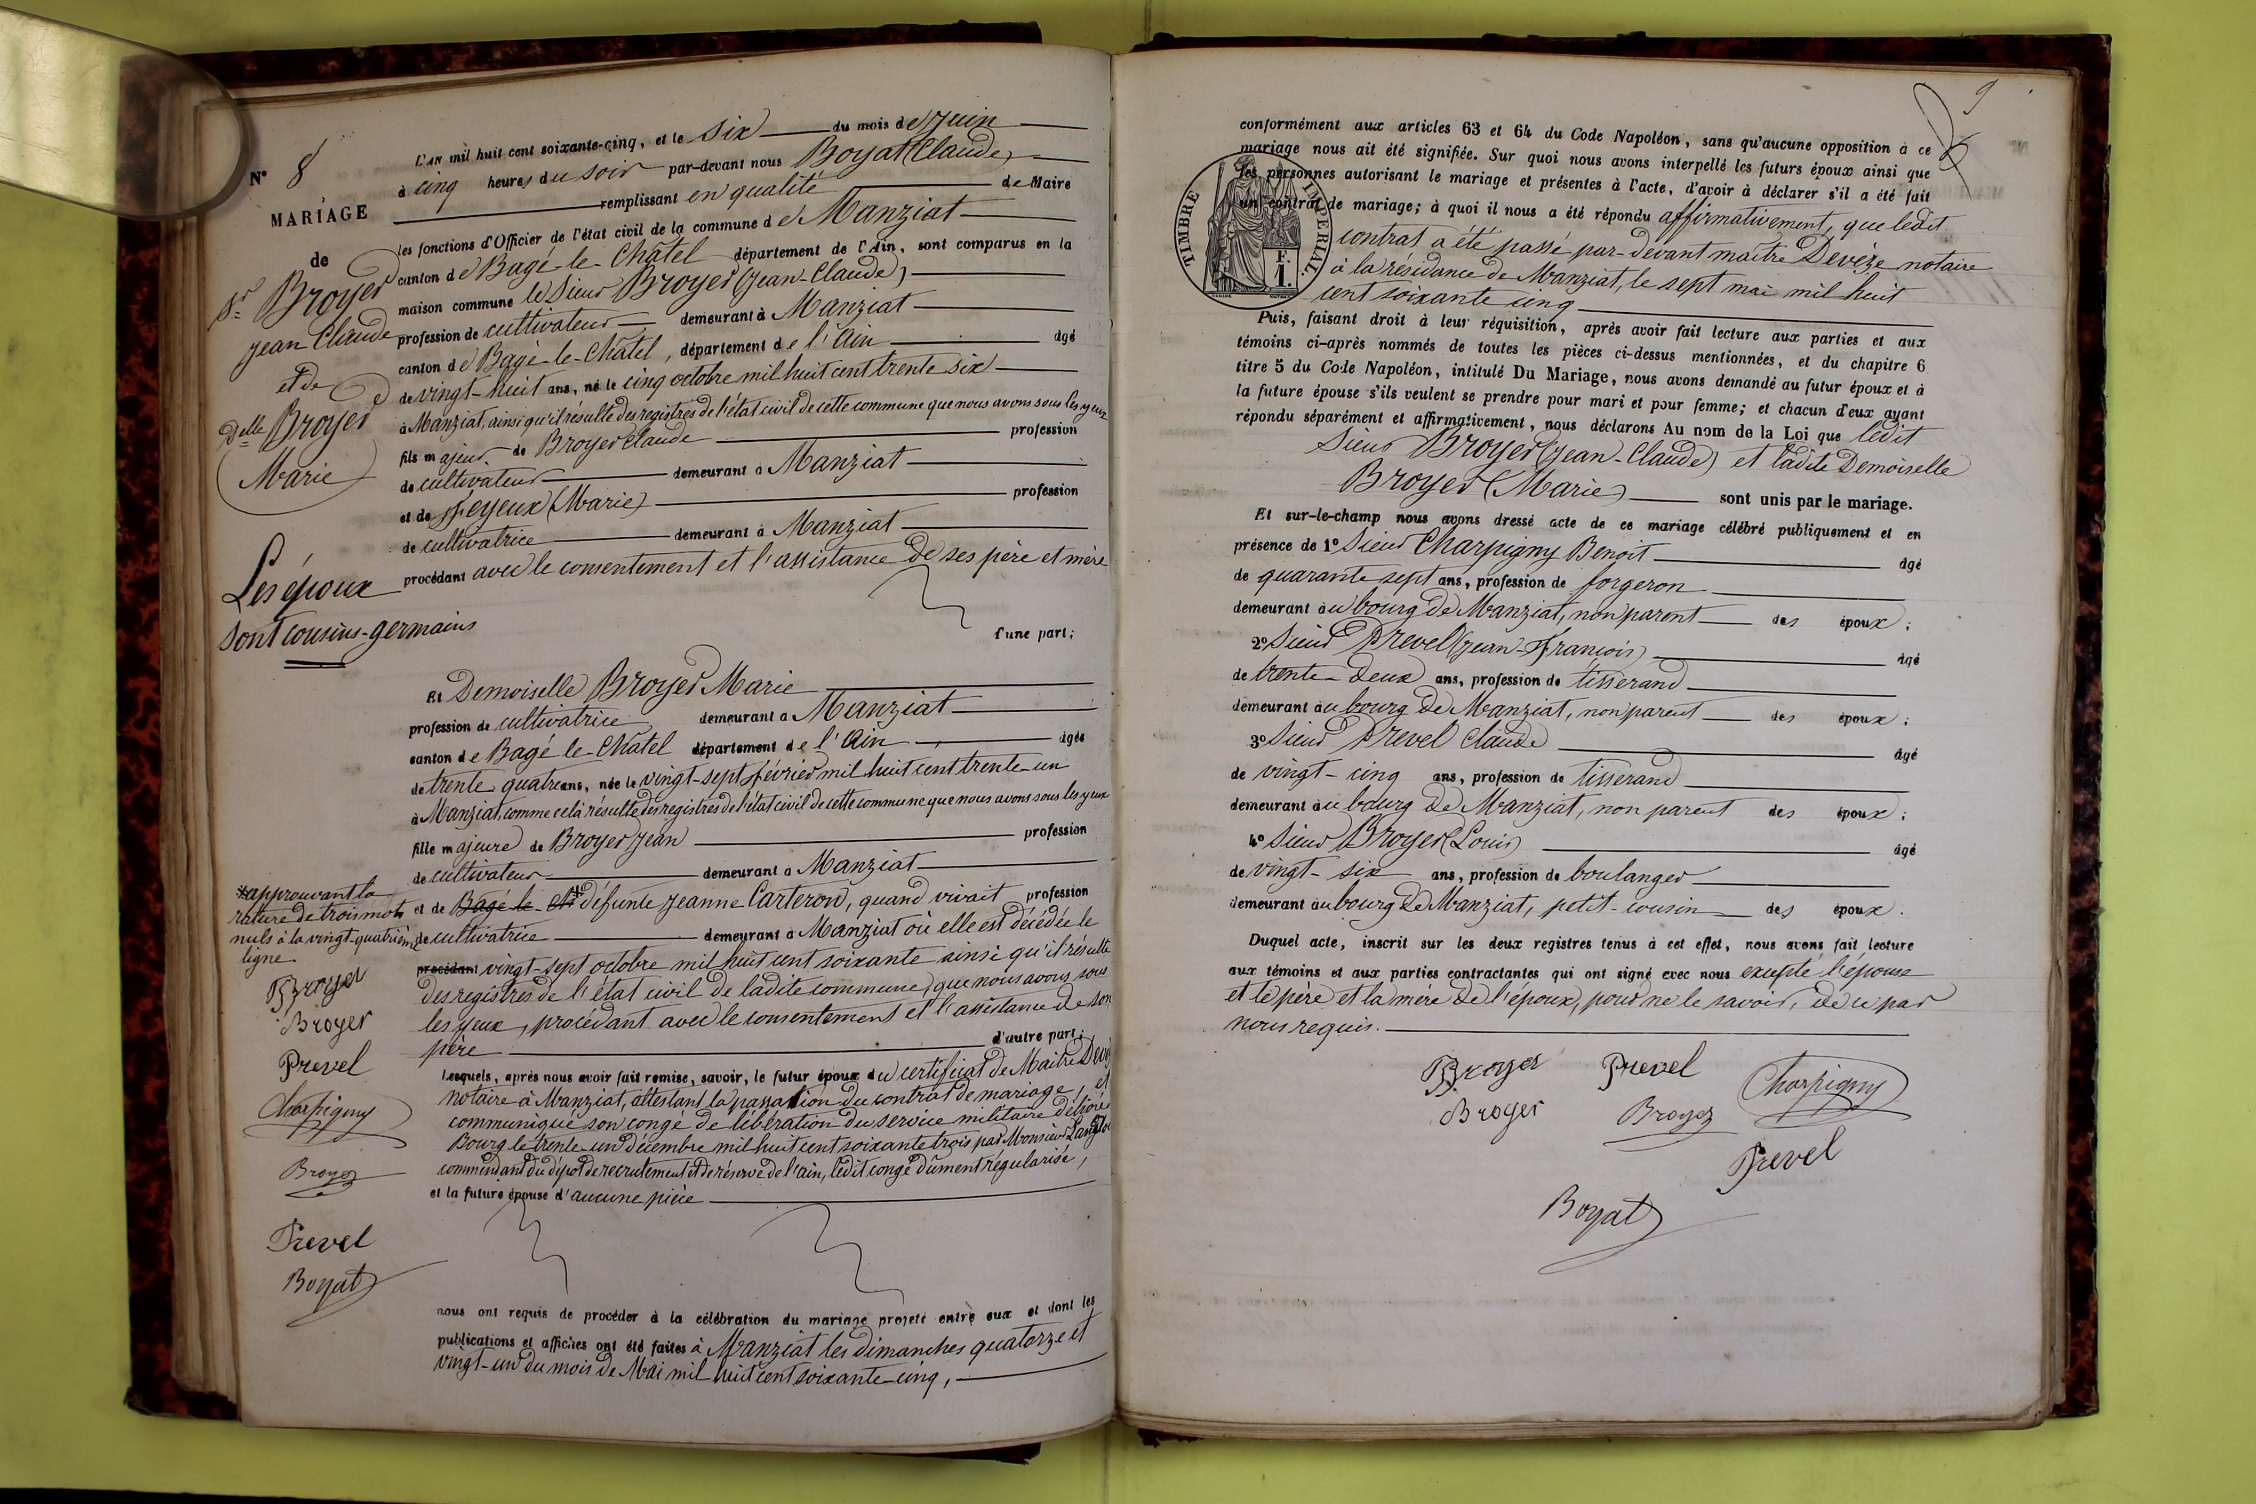 N° 8
MARIAGE
de
Sr Broyer
Jean Claude
et de
Delle Broyer
Marie
Les époux
sont cousins-germains
*approuvant la
rature de trois mots
nuls à la vingt-quatrième
ligne
Broyer
Broyer
Prevel
Charpigny
Broyer
Prevel
Boyat
L'AN mil huit cent soixante-cinq, et le six du mois de Juin
à cinq heures du soir par-devant nous Boyat (Claude)
remplissant en qualité de Maire
les fonctions d'Officier de l'état civil de la commune de Manziat
canton de Bagé-le-Châtel département de l'Ain, sont comparus en la
maison commune le Sieur Broyer (Jean-Claude)
profession de cultivateur demeurant à Manziat
canton de Bagé-le-Châtel, département de l'Ain âgé
de vingt-huit ans, né le cinq octobre mil huit cent trente six
à Manziat, ainsi qu'il résulte des registres de l'état civil de cette commune que nous avons sous les yeux
fils majeur de Broyer Claude profession
de cultivateur demeurant à Manziat
et de Feyeux (Marie) profession
de cultivatrice demeurant à Manziat
procédant avec le consentement et l'assistance de ses père et mère
d'une part;
Et Demoiselle Broyer Marie
profession de cultivatrice demeurant à Manziat
canton de Bagé-le-Châtel département de l'Ain âgée
de trente quatre ans, née le vingt-sept février mil huit cent trente-un
à Manziat, comme cela résulte des registres de l'état civil de cette commune que nous avons sous les yeux
fille majeure de Broyer Jean profession
de cultivateur demeurant à Manziat
et de Bagé-le-Ch * défunte Jeanne Carteron, quand vivait profession
de cultivatrice demeurant à Manziat où elle est décédée le
procédant vingt-sept octobre mil huit cent soixante ainsi qu'il résulte
des registres de l'état civil de ladite commune, que nous avons sous
les yeux, procédant avec le consentement et l'assistance de son
père d'autre part;
Lesquels, après nous avoir fait remise, savoir, le futur époux du certificat de Maître Devèze
notaire à Manziat, attestant la passation du contrat de mariage, et
communiqué son congé de libération du service militaire délivré
Bourg le trente-un décembre mil huit cent soixante trois par Monsieur
commendant du dépôt de recrutement et de réserve de l'ain, ledit congé dûment régularisé,
et la future épouse d'aucune pièce
nous ont requis de procéder à la célébration du mariage projeté entre eux et dont les
publications et affiches ont été faites à Manziat les dimanches quatorze et
vingt-un du mois de Mai mil huit cent soixante-cinq,
9
conformément aux articles 63 et 64 du Code Napoléon, sans qu'aucune opposition à ce
mariage nous ait été signifiée. Sur quoi nous avons interpellé les futurs époux ainsi que
les personnes autorisant le mariage et présentes à l'acte, d'avoir à déclarer s'il a été fait
un contrat de mariage; à quoi il nous a été répondu affirmativement, que ledit
contrat a été passé par-devant maître Devèze notaire
à la résidance de Manziat, le sept mai mil huit
cent soixante cinq
TIMBRE IMPERIAL.
F.
1.
Puis, faisant droit à leur réquisition, après avoir fait lecture aux parties et aux
témoins ci-après nommés de toutes les pièces ci-dessus mentionnées, et du chapitre 6
titre 5 du Code Napoléon, intitulé Du Mariage, nous avons demandé au futur époux et à
la future épouse s'ils veulent se prendre pour mari et pour femme; et chacun d'eux ayant
répondu séparément et affirmativement, nous déclarons Au nom de la Loi que ledit
Sieur Broyer (Jean-Claude) et ladite Demoiselle
Broyer (Marie) sont unis par le mariage.
Et sur-le-champ nous avons dressé acte de ce mariage célébré publiquement et en
présence de 1° Sieur Charpigny Benoit âgé
de quarante sept ans, profession de forgeron
demeurant au bourg de Manziat, non parent des époux;
2° Sieur Prevel (Jean-François) âgé
de trente-deux ans, profession de tisserand
demeurant au bourg de Manziat, non parent des époux;
3° Sieur Prevel Claude âgé
de vingt-cinq ans, profession de tisserand
demeurant au bourg de Manziat, non parent des époux;
4° Sieur Broyer (Louis) âgé
de vingt-six ans, profession de boulanger
demeurant au bourg de Manziat, petit-cousin des époux.
Duquel acte, inscrit sur les deux registres tenus à cet effet, nous avons fait lecture
aux témoins et aux parties contractantes qui ont signé avec nous excepté l'épouse
et le père et la mère de l'époux, pour ne le savoir, de ce par
nous requis.
Broyer Prevel Charpigny
Broyer Broyer
Prevel
Boyat